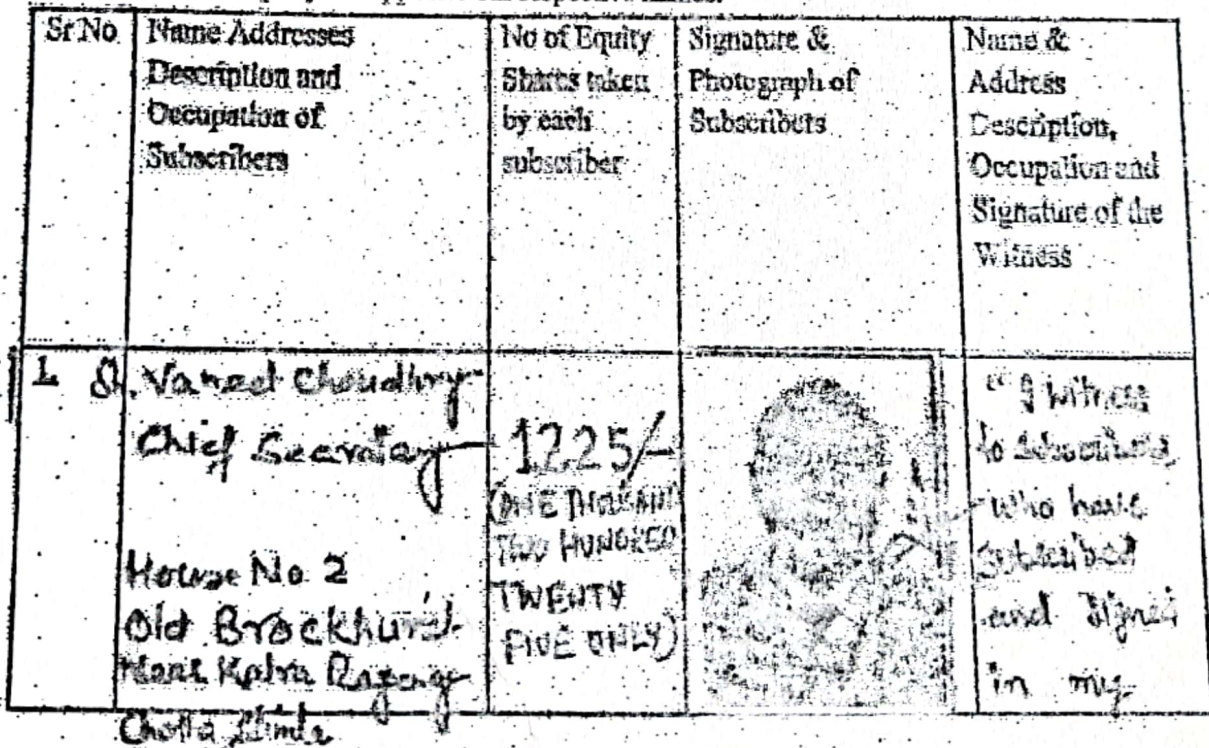 Sr.No
Name Addresses
Description and
Occupation of
Subscribers
No of Equity
Shares taken
by each
subscriber
Signature &
Photograph of
Subscribers
Name &
Address
Description,
Occupation and
Signature of the
Witness
1
Sh. Vaneet Choudhry
Chief Secretary
House No 2
Old Brockhurst
Chotta Shimla
1225/-
(ONE THOUSAND
TWO HUNDRED
TWENTY
FIVE ONLY)
" I witness
to subscribers
who have
subscribed
and signed
in my